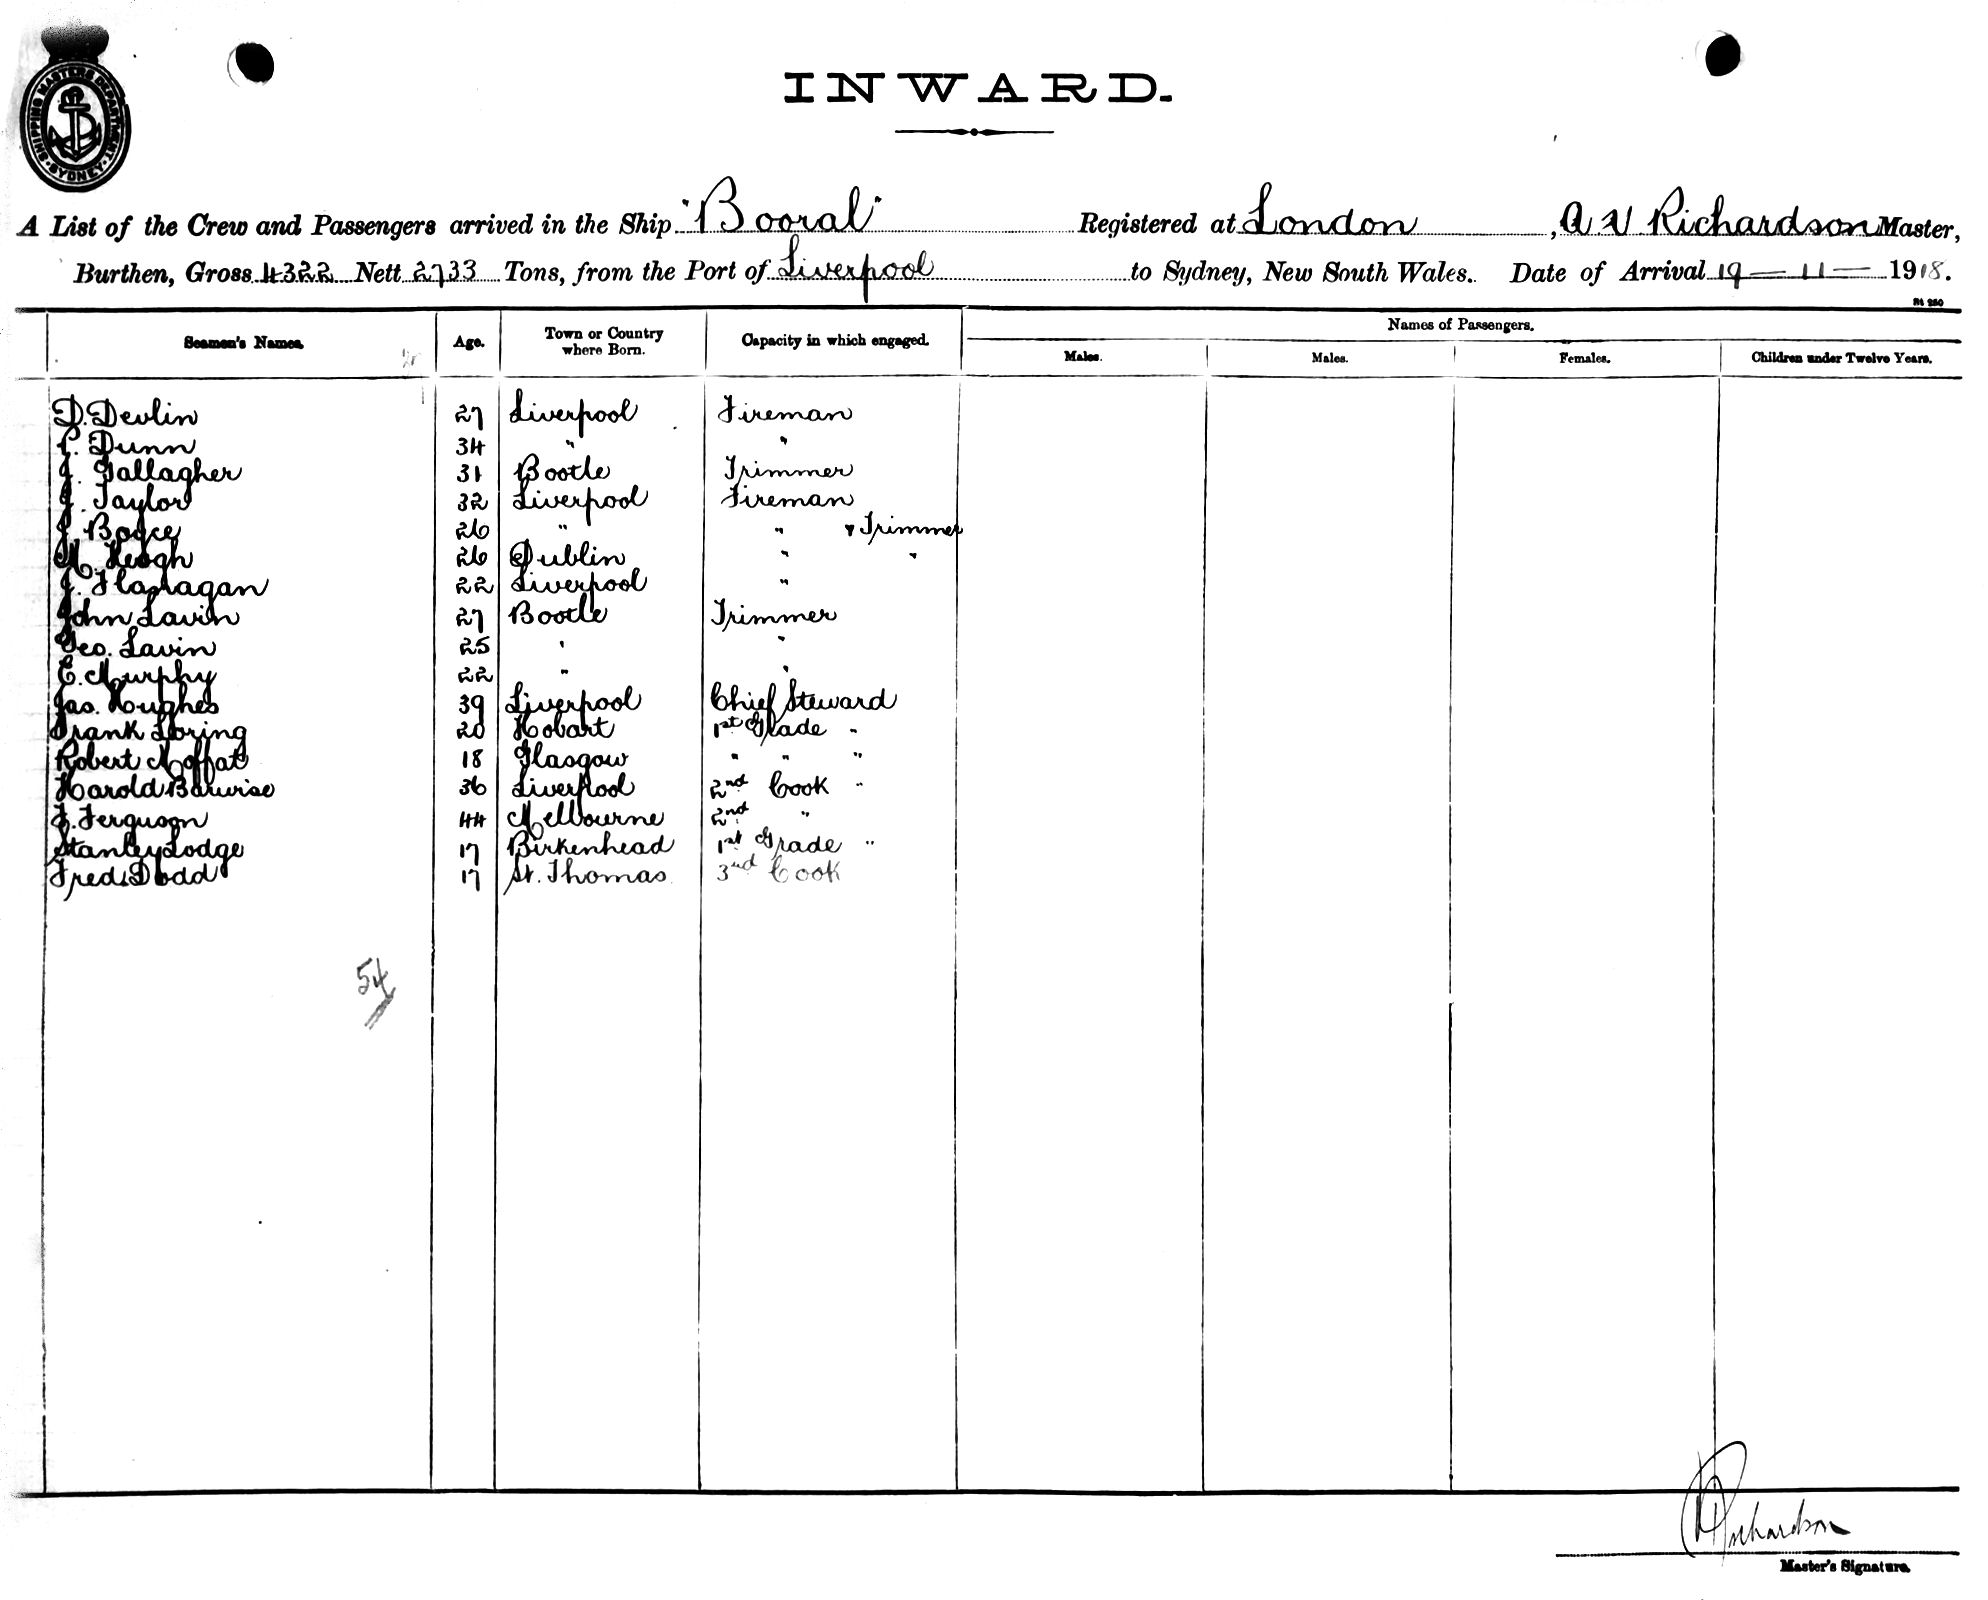 SHIPPING MASTERS DEPARTMENT · SYDNEY ·
INWARD.
A List of the Crew and Passengers arrived in the Ship "Booral" Registered at London, A V Richardson Master,
Burthen, Gross 4322 Nett 2733 Tons, from the Port of Liverpool to Sydney, New South Wales. Date of Arrival 19 — 11 — 1918.
Seamen's Names. Age. Town or Country where Born. Capacity in which engaged. Names of Passengers.
Males. Males. Females. Children under Twelve Years.
D. Devlin 27 Liverpool Fireman
P. Dunn 34 " "
J. Gallagher 31 Bootle Trimmer
J. Taylor 32 Liverpool Fireman
J. Boyce 26 " " & Trimmer
M. Keogh 26 Dublin " "
J. Flanagan 22 Liverpool "
John Lavin 27 Bootle Trimmer
Geo. Lavin 25 " "
E. Murphy 22 " "
Jas. Hughes 39 Liverpool Chief Steward
Frank Loring 20 Hobart 1st Grade "
Robert Moffat 18 Glasgow " " "
Harold Barwise 36 Liverpool 2nd Cook "
F. Ferguson 44 Melbourne 2nd "
Stanley Lodge 17 Birkenhead 1st Grade "
Fred Dodd 17 St. Thomas 3nd Cook
54
Richardson
Master's Signature.